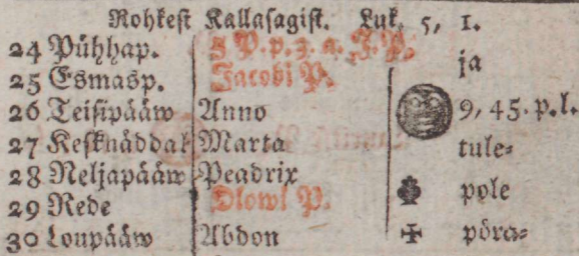 Rohkest Kallasagist. Luk. 5, 1.
24 Pühhap. 5 P. p. 3. a. J. P.
25 Esmasp. Jacobi P. ja
26 Teisipääw Anno 9, 45. p. l.
27 Kesknäddal Marta tule-
28 Neljapääw Peadrix
29 Rede Olowi P. pole
30 Loupääw Abdon põra-